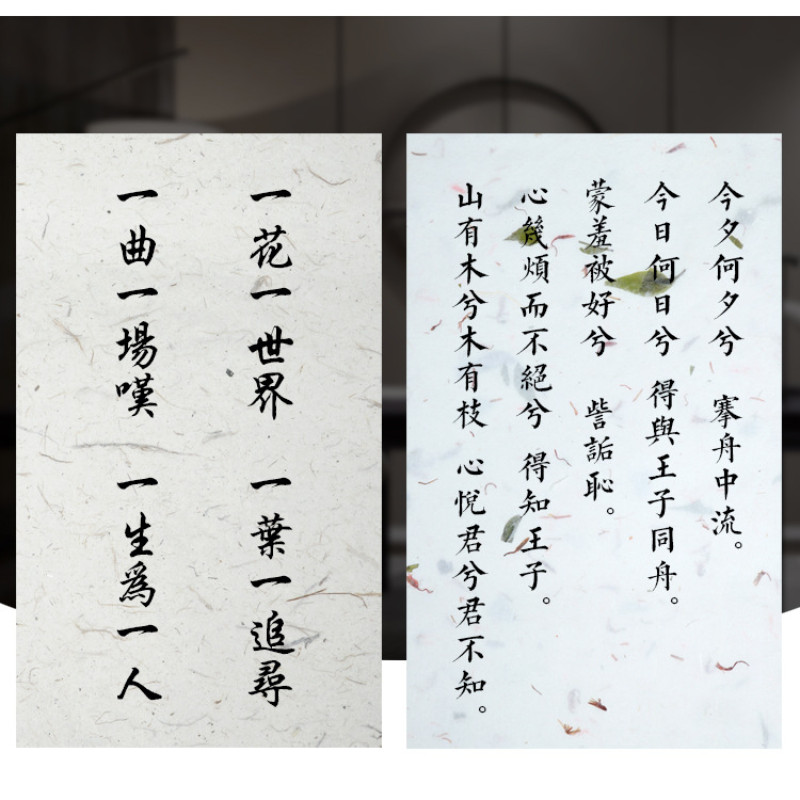 一花一世界 一葉一追尋
一曲一場嘆 一生爲一人
今夕何夕兮 搴舟中流。
今日何日兮 得與王子同舟。
蒙羞被好兮 訾詬恥。
心幾煩而不絕兮 得知王子。
山有木兮木有枝 心悅君兮君不知。